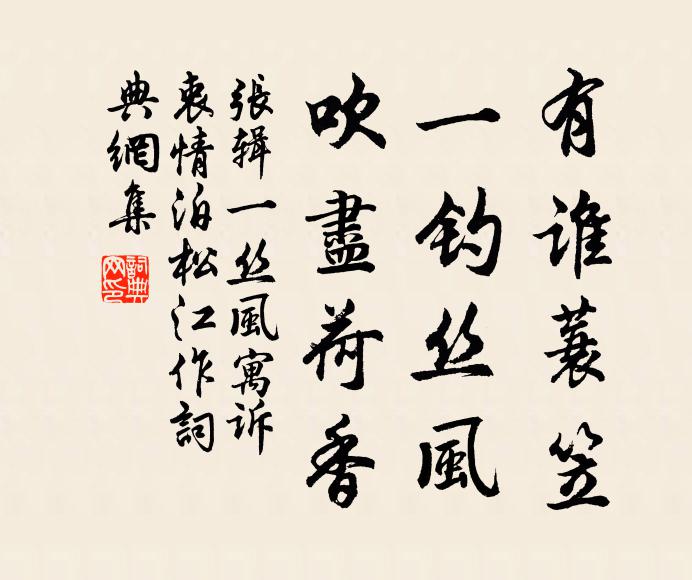 有谁蓑笠
一钓丝風
吹盡荷香
張辑一丝風寓诉
衷情泊松江作詞
典網集
詞典
网印